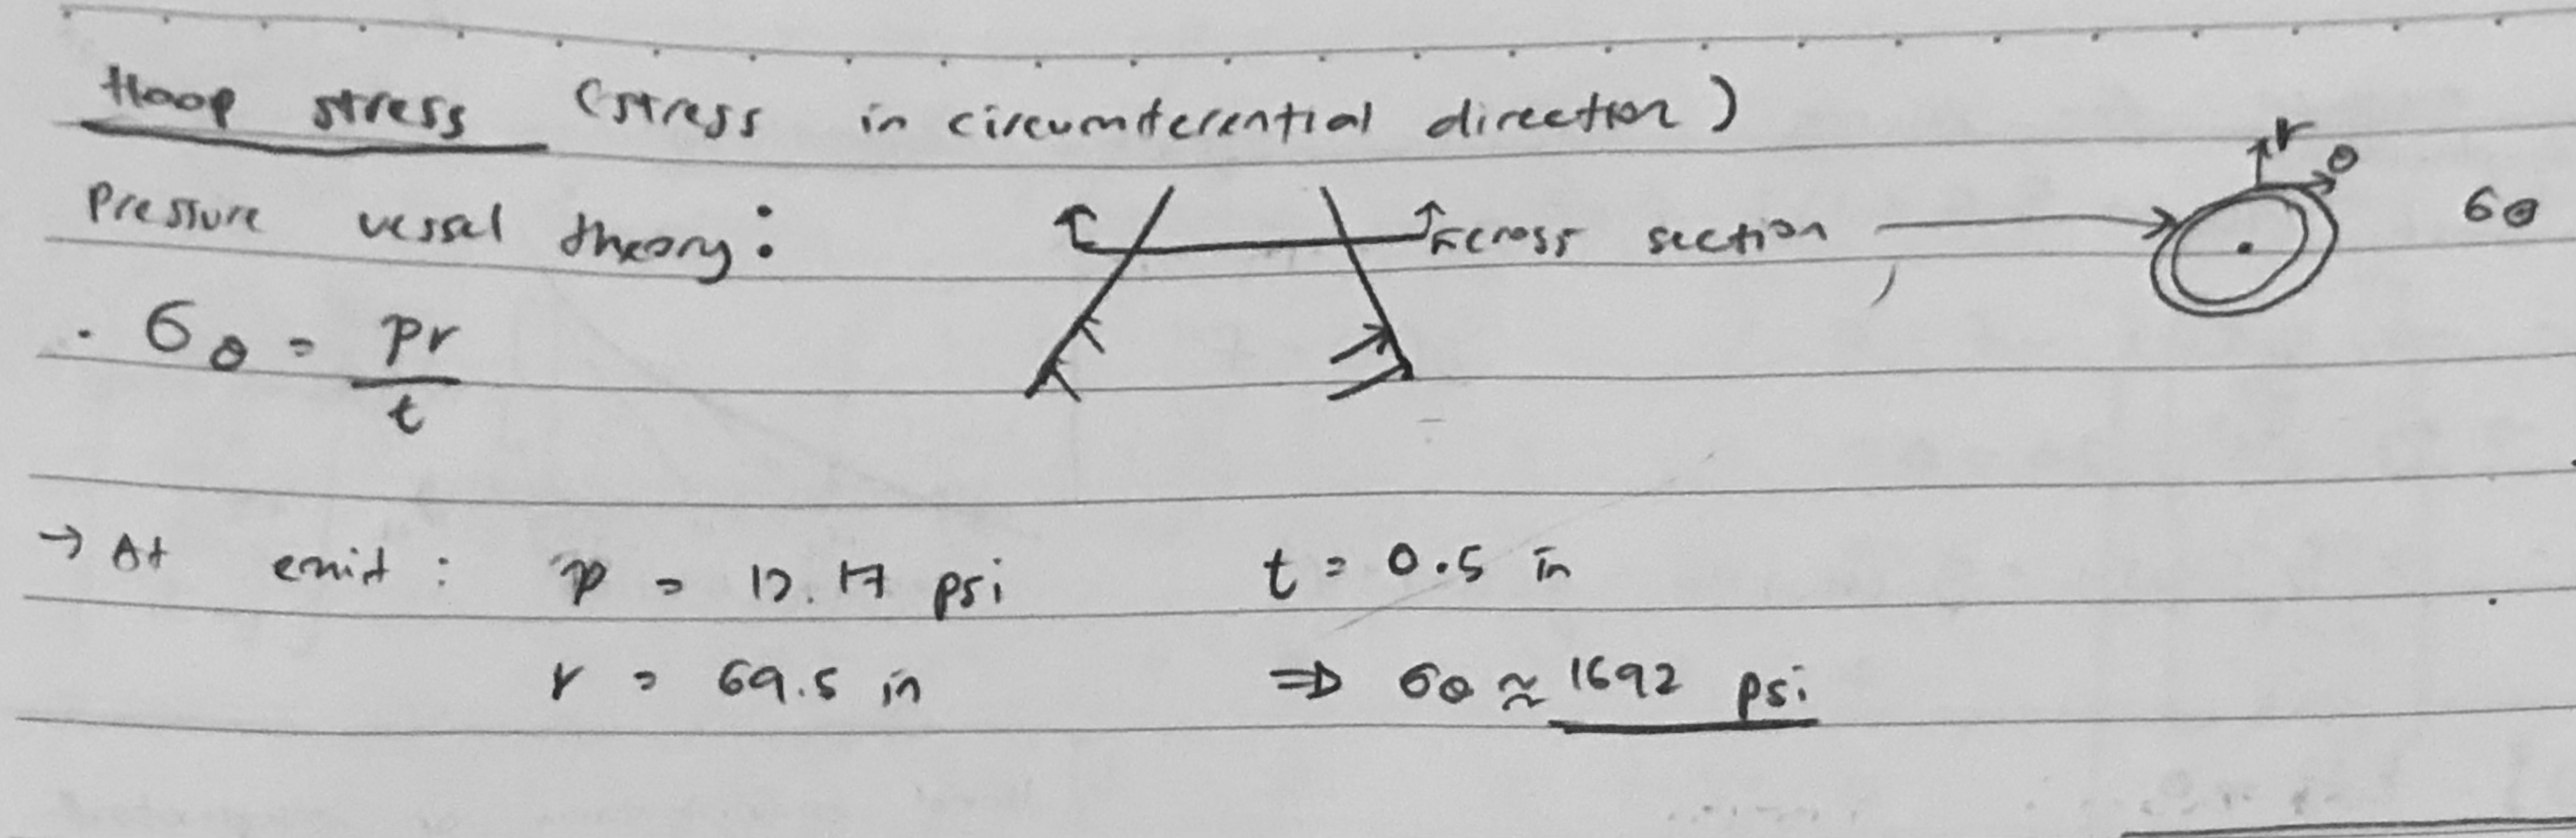 Hoop stress (stress in circumferential direction)
r θ
Pressure vessel theory: cross section σθ
σθ = pr
t
→ At exit: p = 12.17 psi t = 0.5 in
r = 69.5 in ⇒ σθ ≈ 1692 psi